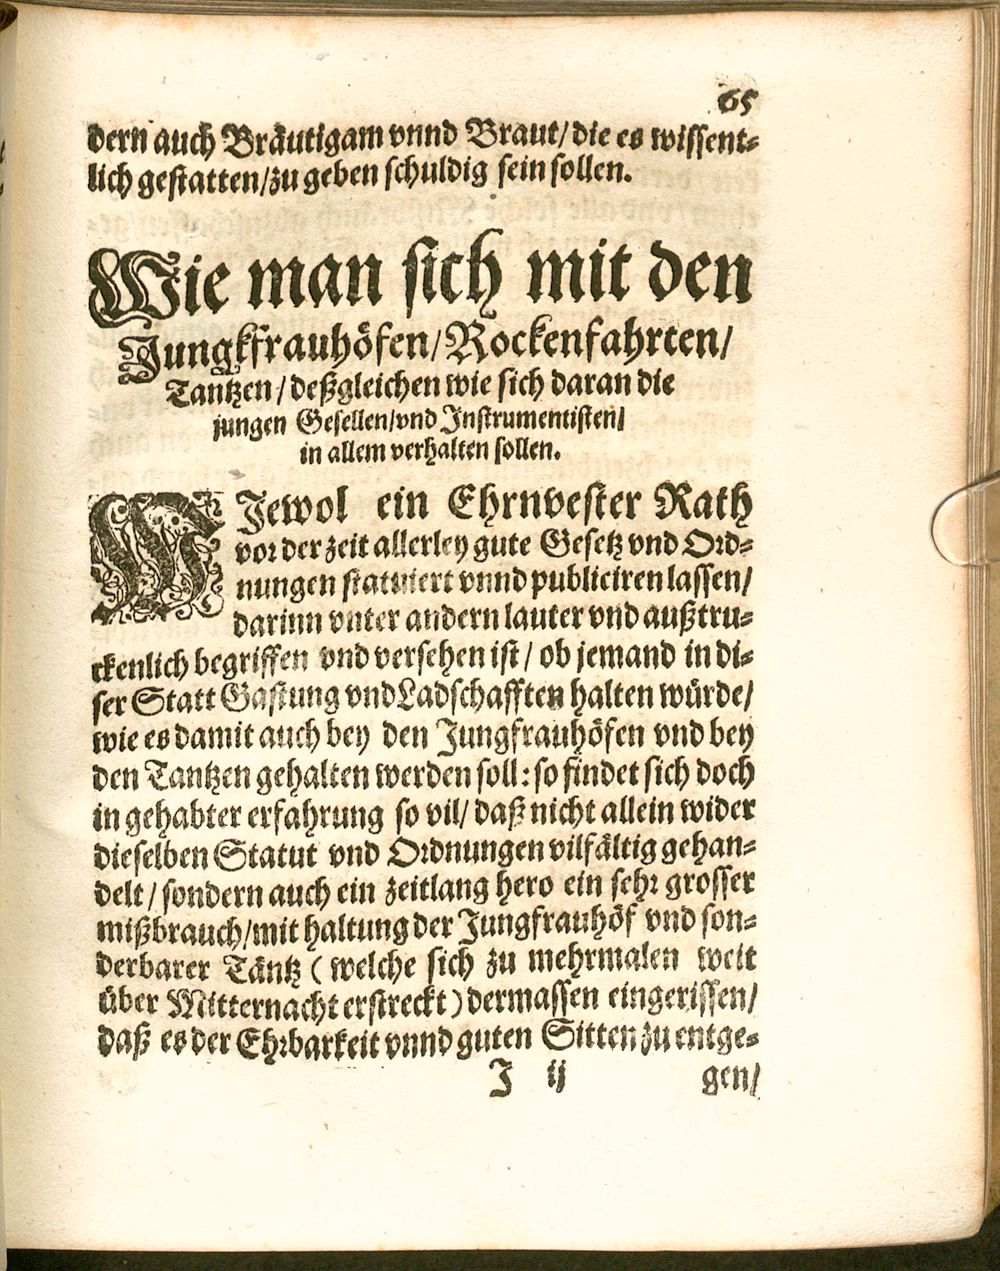 65
dern auch Bräutigam vnnd Braut/ die es wissent-
lich gestatten/ zu geben schuldig sein sollen.
Wie man sich mit den
Jungkfrauhöfen/ Rockenfahrten/
Tantzen/ deßgleichen wie sich daran die
jungen Gesellen/ vnd Instrumentisten/
in allem verhalten sollen.
WJewol ein Ehrnvester Rath
vor der zeit allerley gute Gesetz vnd Ord-
nungen statuiert vnnd publiciren lassen/
darinn vnter andern lauter vnd außtru-
ckenlich begriffen vnd versehen ist/ ob jemand in di-
ser Statt Gastung vnd Ladschafften halten würde/
wie es damit auch bey den Jungfrauhöfen vnd bey
den Tantzen gehalten werden soll: so findet sich doch
in gehabter erfahrung so vil/ daß nicht allein wider
dieselben Statut vnd Ordnungen vilfältig gehan-
delt/ sondern auch ein zeitlang hero ein sehr grosser
mißbrauch/ mit haltung der Jungfrauhöf vnd son-
derbarer Täntz ( welche sich zu mehrmalen weit
über Mitternacht erstreckt ) dermassen eingerissen/
daß es der Ehrbarkeit vnnd guten Sitten zu entge-
J ij gen/